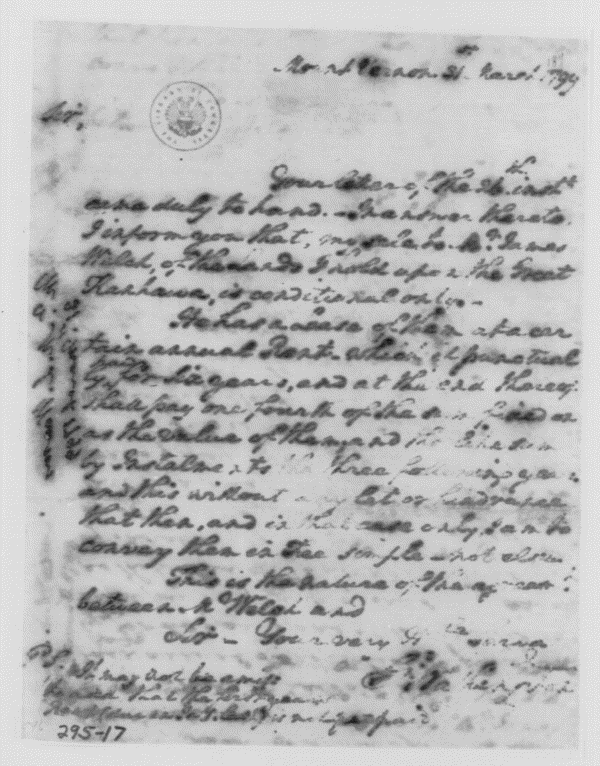 Mount Vernon 31st March 1799
Sir,
Your letter of the 26th instt
came duly to hand. - In answer thereto.
I inform you that, my sale to Mr James
Welch, of the lands I hold upon the Great
Kanhawa, is conditional only. -
He has a Lease of them at a cer
tain annual Rent - which if punctual
ly for Six years, and at the end thereof
shall pay one fourth of the sum fixed on
as the value of them, and the like sum
by Instalments the three following years
and this without any let or hindrance
that then, and in that case only, I am to
convey them in Fee simple - not else
This is the nature of the agreemt
between Mr Welch and
Sir - Your very Hble Servant
Go: Washington
P.S. It may not be amiss
to add that the first years
Rent is not yet paid
295-17